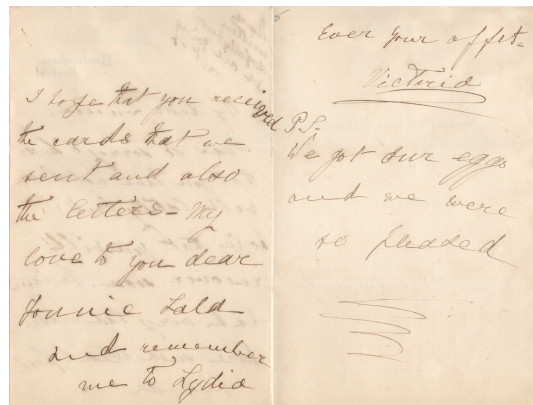 I hope that you received
the cards that we
sent and also
the letters - My
love to you dear
Lald
and remember
me to Lydia
Ever your affet-
Victoria
P.S.
We got our eggs
and we were
so pleased